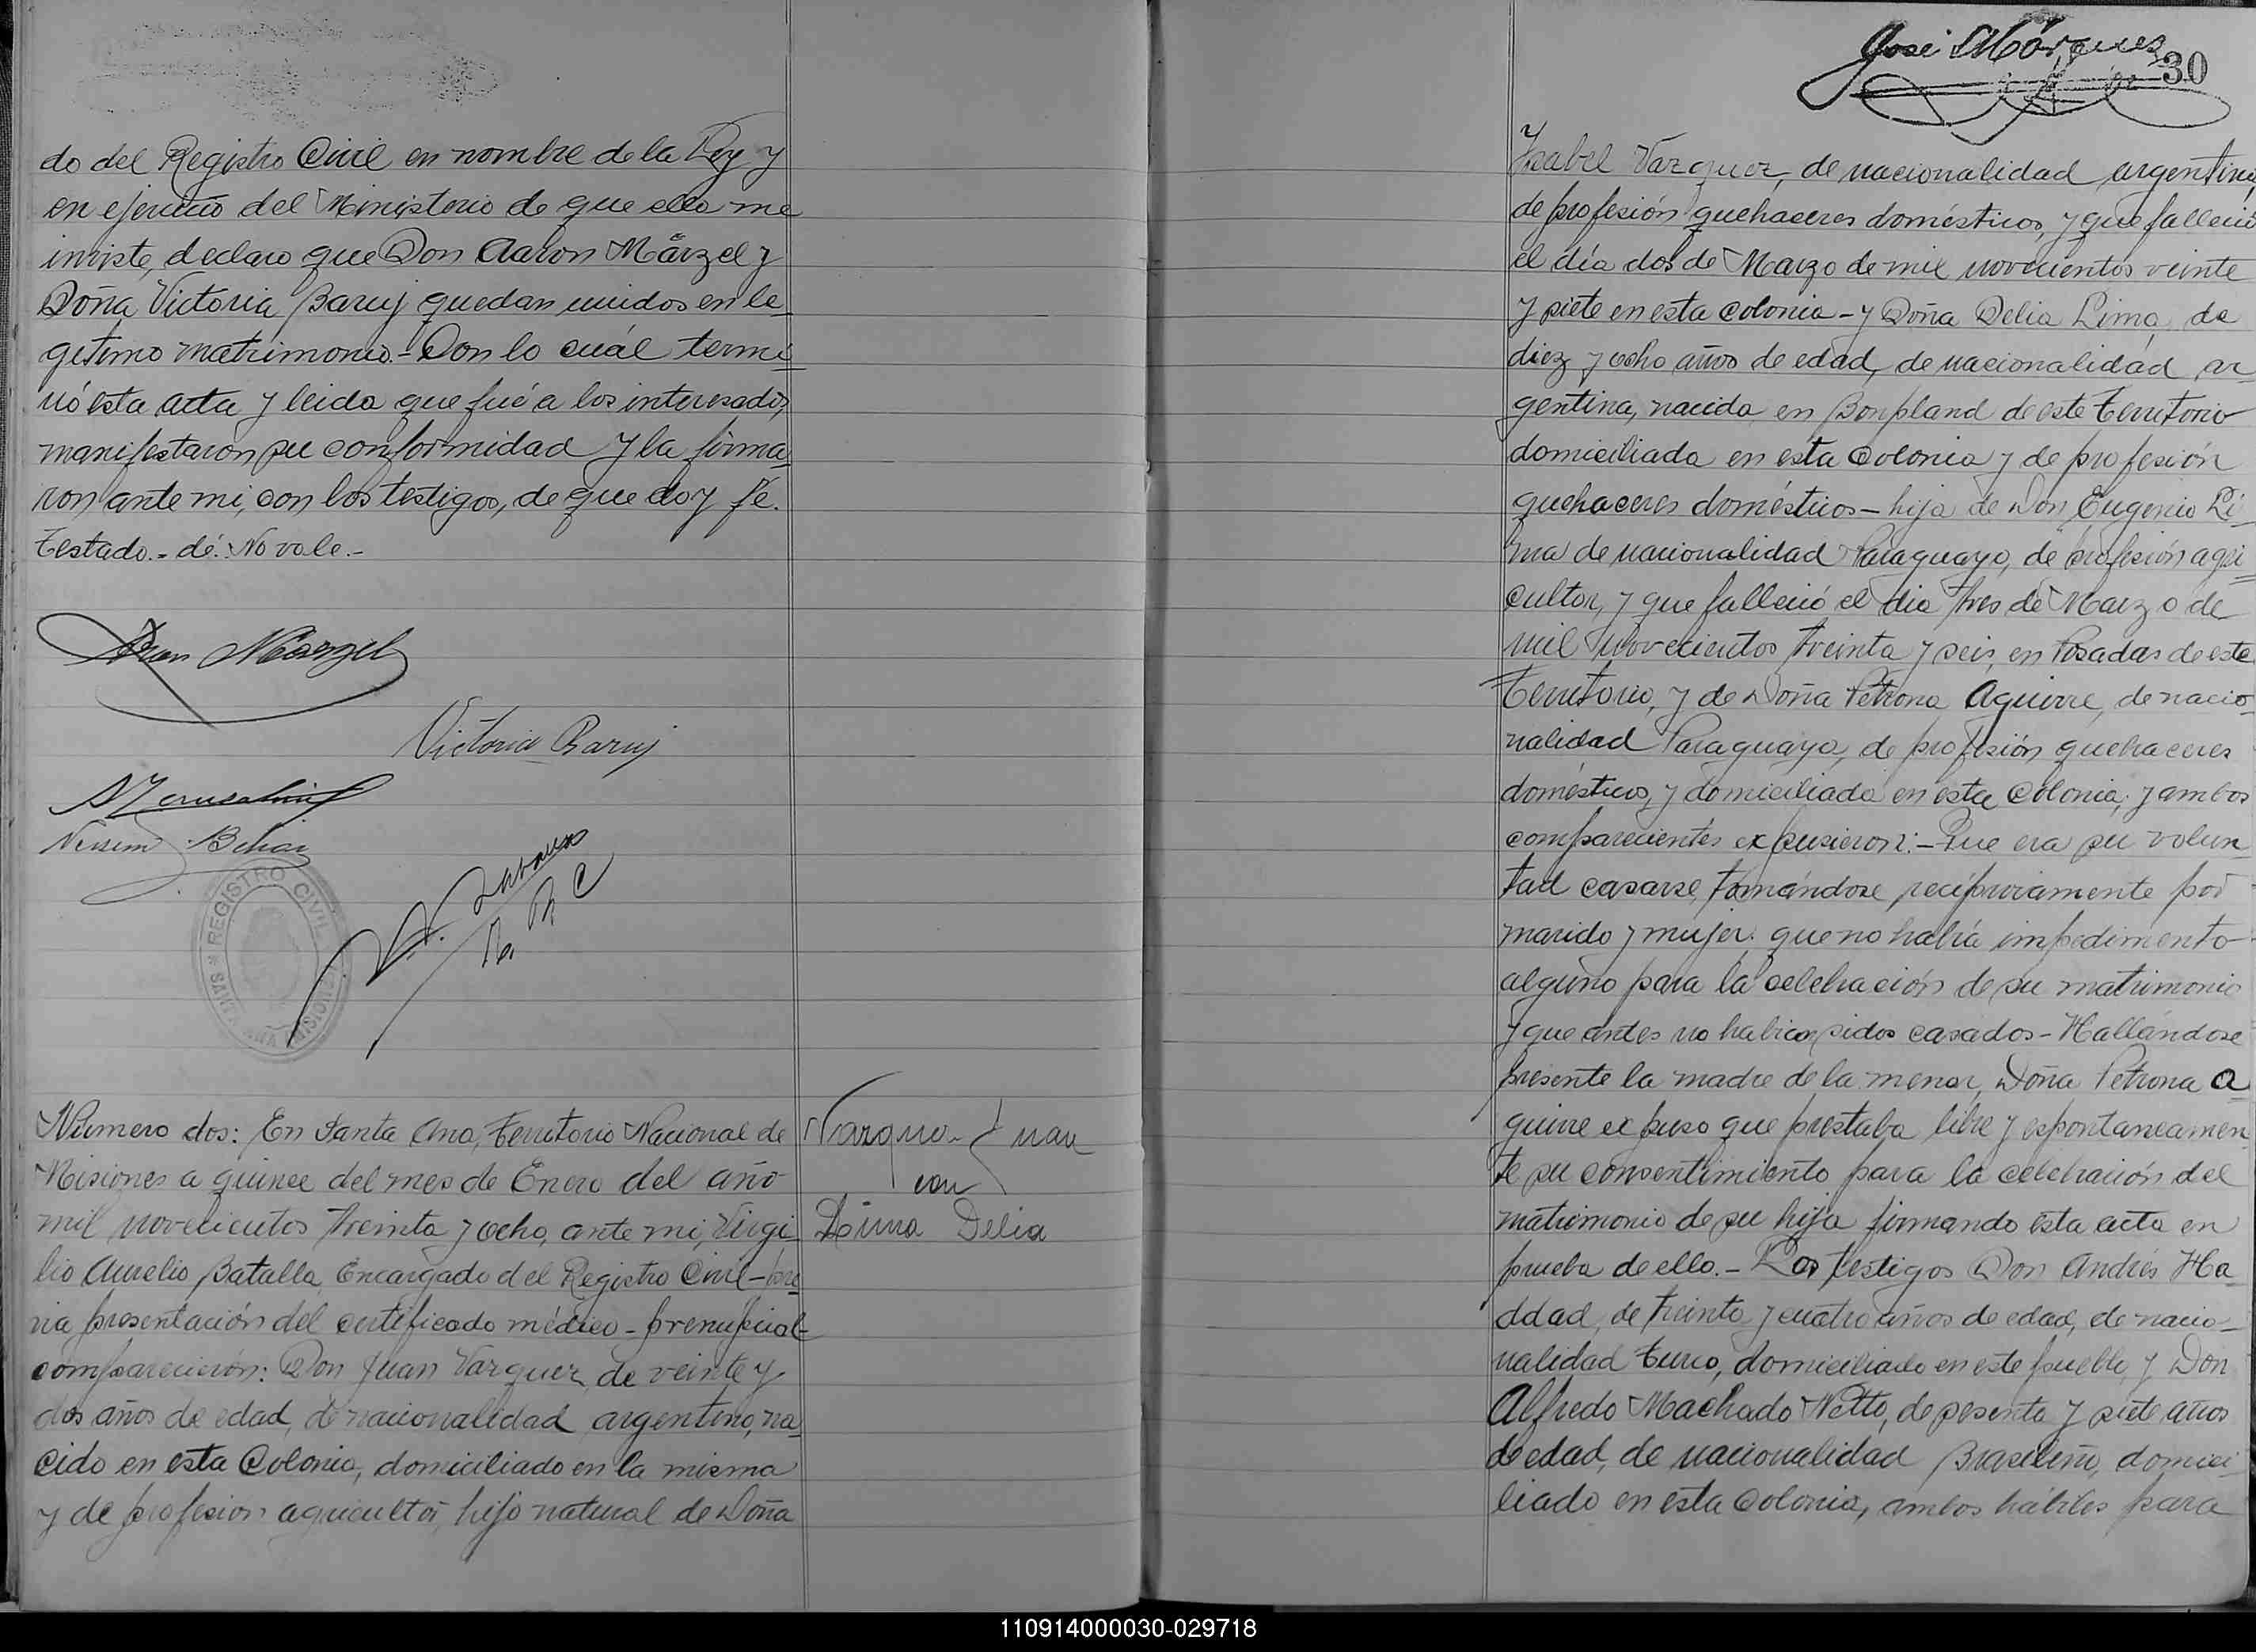 do del Registro Civil en nombre de la Ley y
en ejercicio del Ministerio de que ella me
inviste, declaro que Don Aaron Märzel y
Doña Victoria Baruj quedan unidos en le_
gitimo matrimonio.- Con lo cuál termi_
nó esta acta y leida que fué a los interesados,
manifestaron su conformidad y la firma_
ron ante mi, con los testigos, de que doy fé.
Testado.- dé: No vale.-
Aron Märzel
Victoria Baruj
Nissim Behar
REGISTRO CIVIL
SANTA ANA MISIONES
Número dos: En Santa Ana, Territorio Nacional de
Misiones a quince del mes de Enero del año
mil novecientos treinta y ocho, ante mi, Virgi_
lio Aurelio Batalla, Encargado del Registro Civil - pre_
via presentación del certificado médico - prenupcial -
comparecieron: Don Juan Vazquez, de veinte y
dos años de edad, de nacionalidad argentino, na_
cido en esta Colonia, domiciliado en la misma
y de profesion agricultor, hijo natural de Doña
Juan
con
Lima Delia
José Márquez
30
Ysabel Vazquez, de nacionalidad argentina,
de profesión quehaceres domésticos, y que falleció
el día dos de Marzo de mil novecientos veinte
y siete en esta Colonia - y Doña Delia Lima, de
diez y ocho años de edad, de nacionalidad ar_
gentina, nacida en Bonpland de este Territorio
domiciliada en esta Colonia y de profesión
quehaceres domésticos - hija de Don Eugenio Li_
ma de nacionalidad Paraguayo, de profesión agri_
cultor, y que falleció el dia tres de Marzo de
mil novecientos treinta y seis, en Posadas de este
Territorio, y de Doña Petrona Aguirre, de nacio_
nalidad Paraguaya, de profesión quehaceres
domésticos, y domiciliada en esta Colonia; y ambos
comparecientes expusieron: - Que era su volun_
tad casarse, tomándose recíprocamente por
marido y mujer: que no había impedimento
alguno para la celebración de su matrimonio
y que antes no habian sidos casados - Hallándose
presente la madre de la menor, Doña Petrona A_
guirre expuso que prestaba libre y espontaneamen_
te su consentimiento para la celebración del
matrimonio de su hija firmando esta acta en
prueba de ello. - Los testigos Don Andrés Ha_
ddad, de treinta y cuatro años de edad, de nacio_
nalidad turco, domiciliado en este pueblo, y Don
Alfredo Machado Netto, de sesenta y siete años
de edad, de nacionalidad Brasileño, domici_
liado en esta Colonia, ambos hábiles para
110914000030-029718